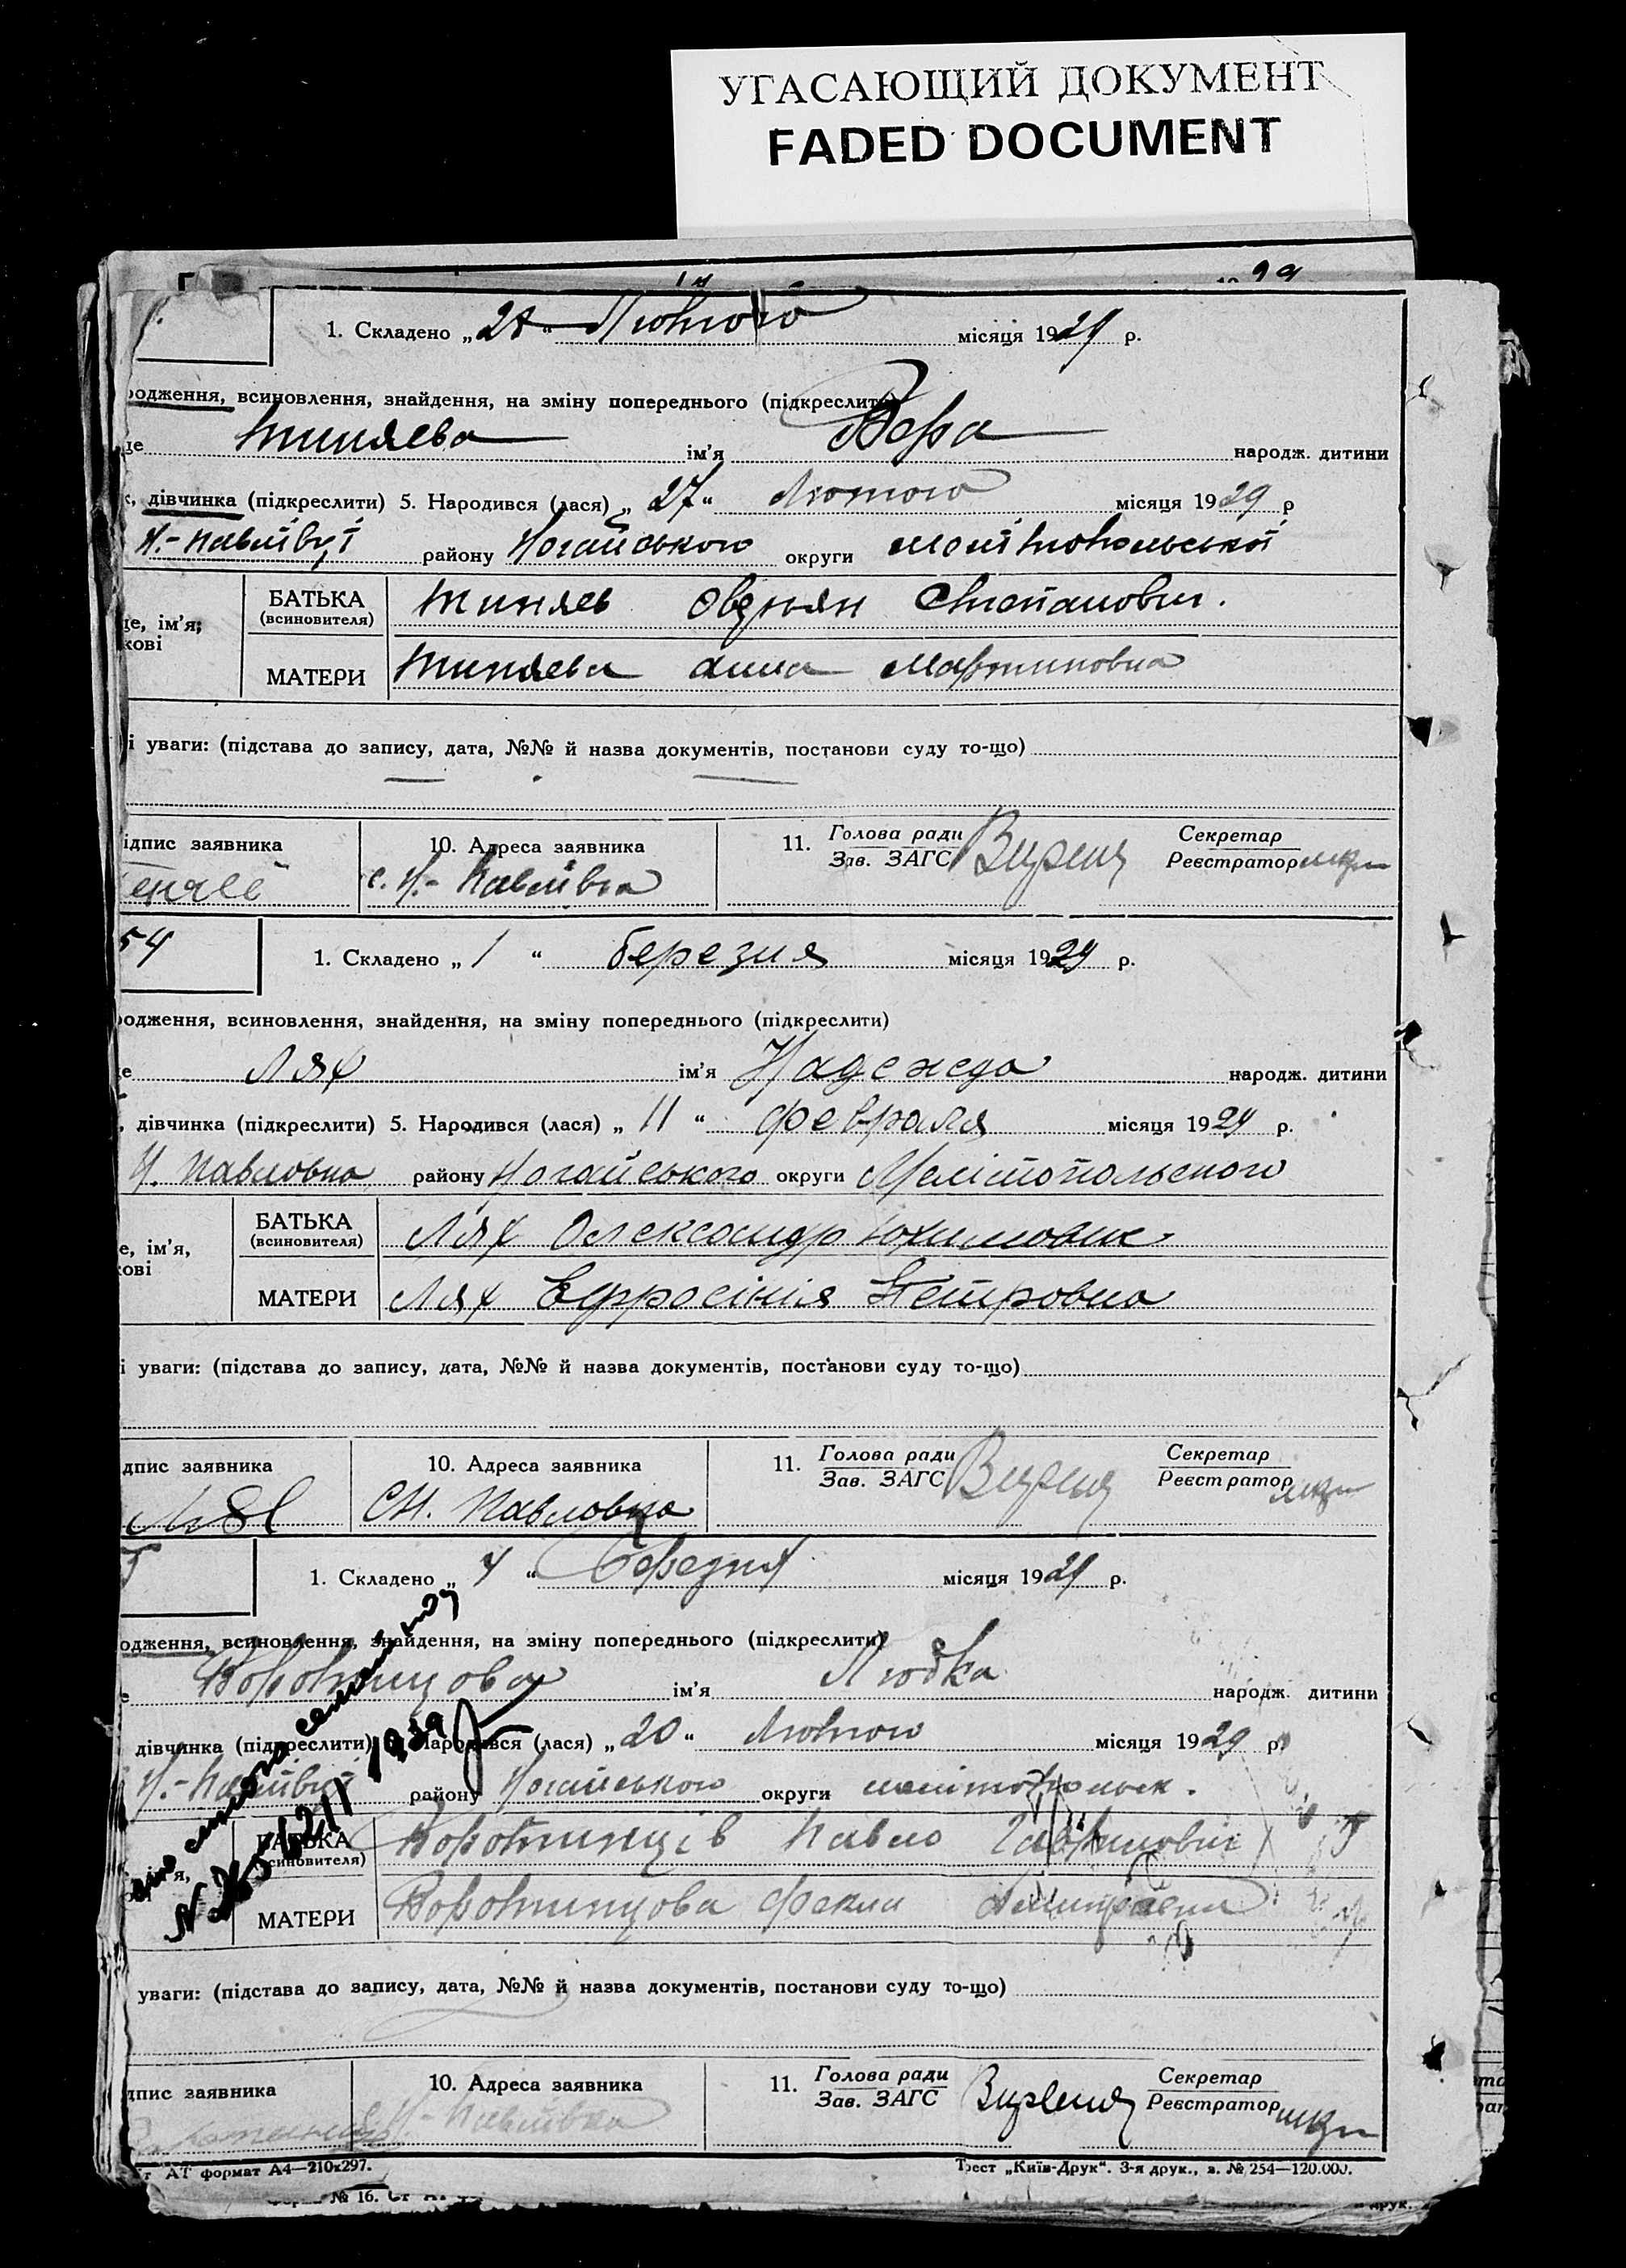 УГАСАЮЩИЙ ДОКУМЕНТ
FADED DOCUMENT
1. Складено „ “ Лютого місяця 1929 р.
родження, всиновлення, знайдення, на зміну попереднього (підкреслити)
це Тиняева ім'я Вера народж. дитини
к, дівчинка (підкреслити) 5. Народився (лася) „ 27 “ Лютого місяця 1929 р
Н.-Павлівці району Ногайського округи Мелітопольської
БАТЬКА Тиняев Овдиян Степанович.
(всиновителя)
це, ім'я,
кові
МАТЕРИ Тиняева Анна Мартиновна
і уваги: (підстава до запису, дата, №№ й назва документів, постанови суду то-що)
ідпис заявника 10. Адреса заявника 11. Голова ради Секретар
Зав. ЗАГС Реєстратор
с. Н.- Павлівка
54 1. Складено „ 1 “ березня місяця 1929 р.
родження, всиновлення, знайдення, на зміну попереднього (підкреслити)
це Лях ім'я Надежда народж. дитини
, дівчинка (підкреслити) 5. Народився (лася) „ 11 “ февраля місяця 1929 р.
Н. Павловка району Ногайського округи Мелітопольського
БАТЬКА Лях Олександр Юхимович
(всиновителя)
е, ім'я,
кові
МАТЕРИ Лях Ефросінія Петровна
і уваги: (підстава до запису, дата, №№ й назва документів, постанови суду то-що)
дпис заявника 10. Адреса заявника 11. Голова ради Секретар
Зав. ЗАГС Реєстратор
С Н. Павловка
1. Складено „ 4 “ Березня місяця 1929 р.
одження, всиновлення, знайдення, на зміну попереднього (підкреслити)
е Воротинцова ім'я Любка народж. дитини
дівчинка (підкреслити) Народився (лася) „ 20 “ Лютого місяця 1929 р
Н.-Павлівці району Ногайського округи мелітопольск.
БАТЬКА Воротинців Павло
(всиновителя)
МАТЕРИ Воротинцова Фекла
уваги: (підстава до запису, дата, №№ й назва документів, постанови суду то-що)
дпис заявника 10. Адреса заявника 11. Голова ради Секретар
Зав. ЗАГС Реєстратор
Н.- Павлівка
АТ формат А4—210х297.
Трест „Київ-Друк“. 3-я друк., з. № 254—120.000.
№ 16.